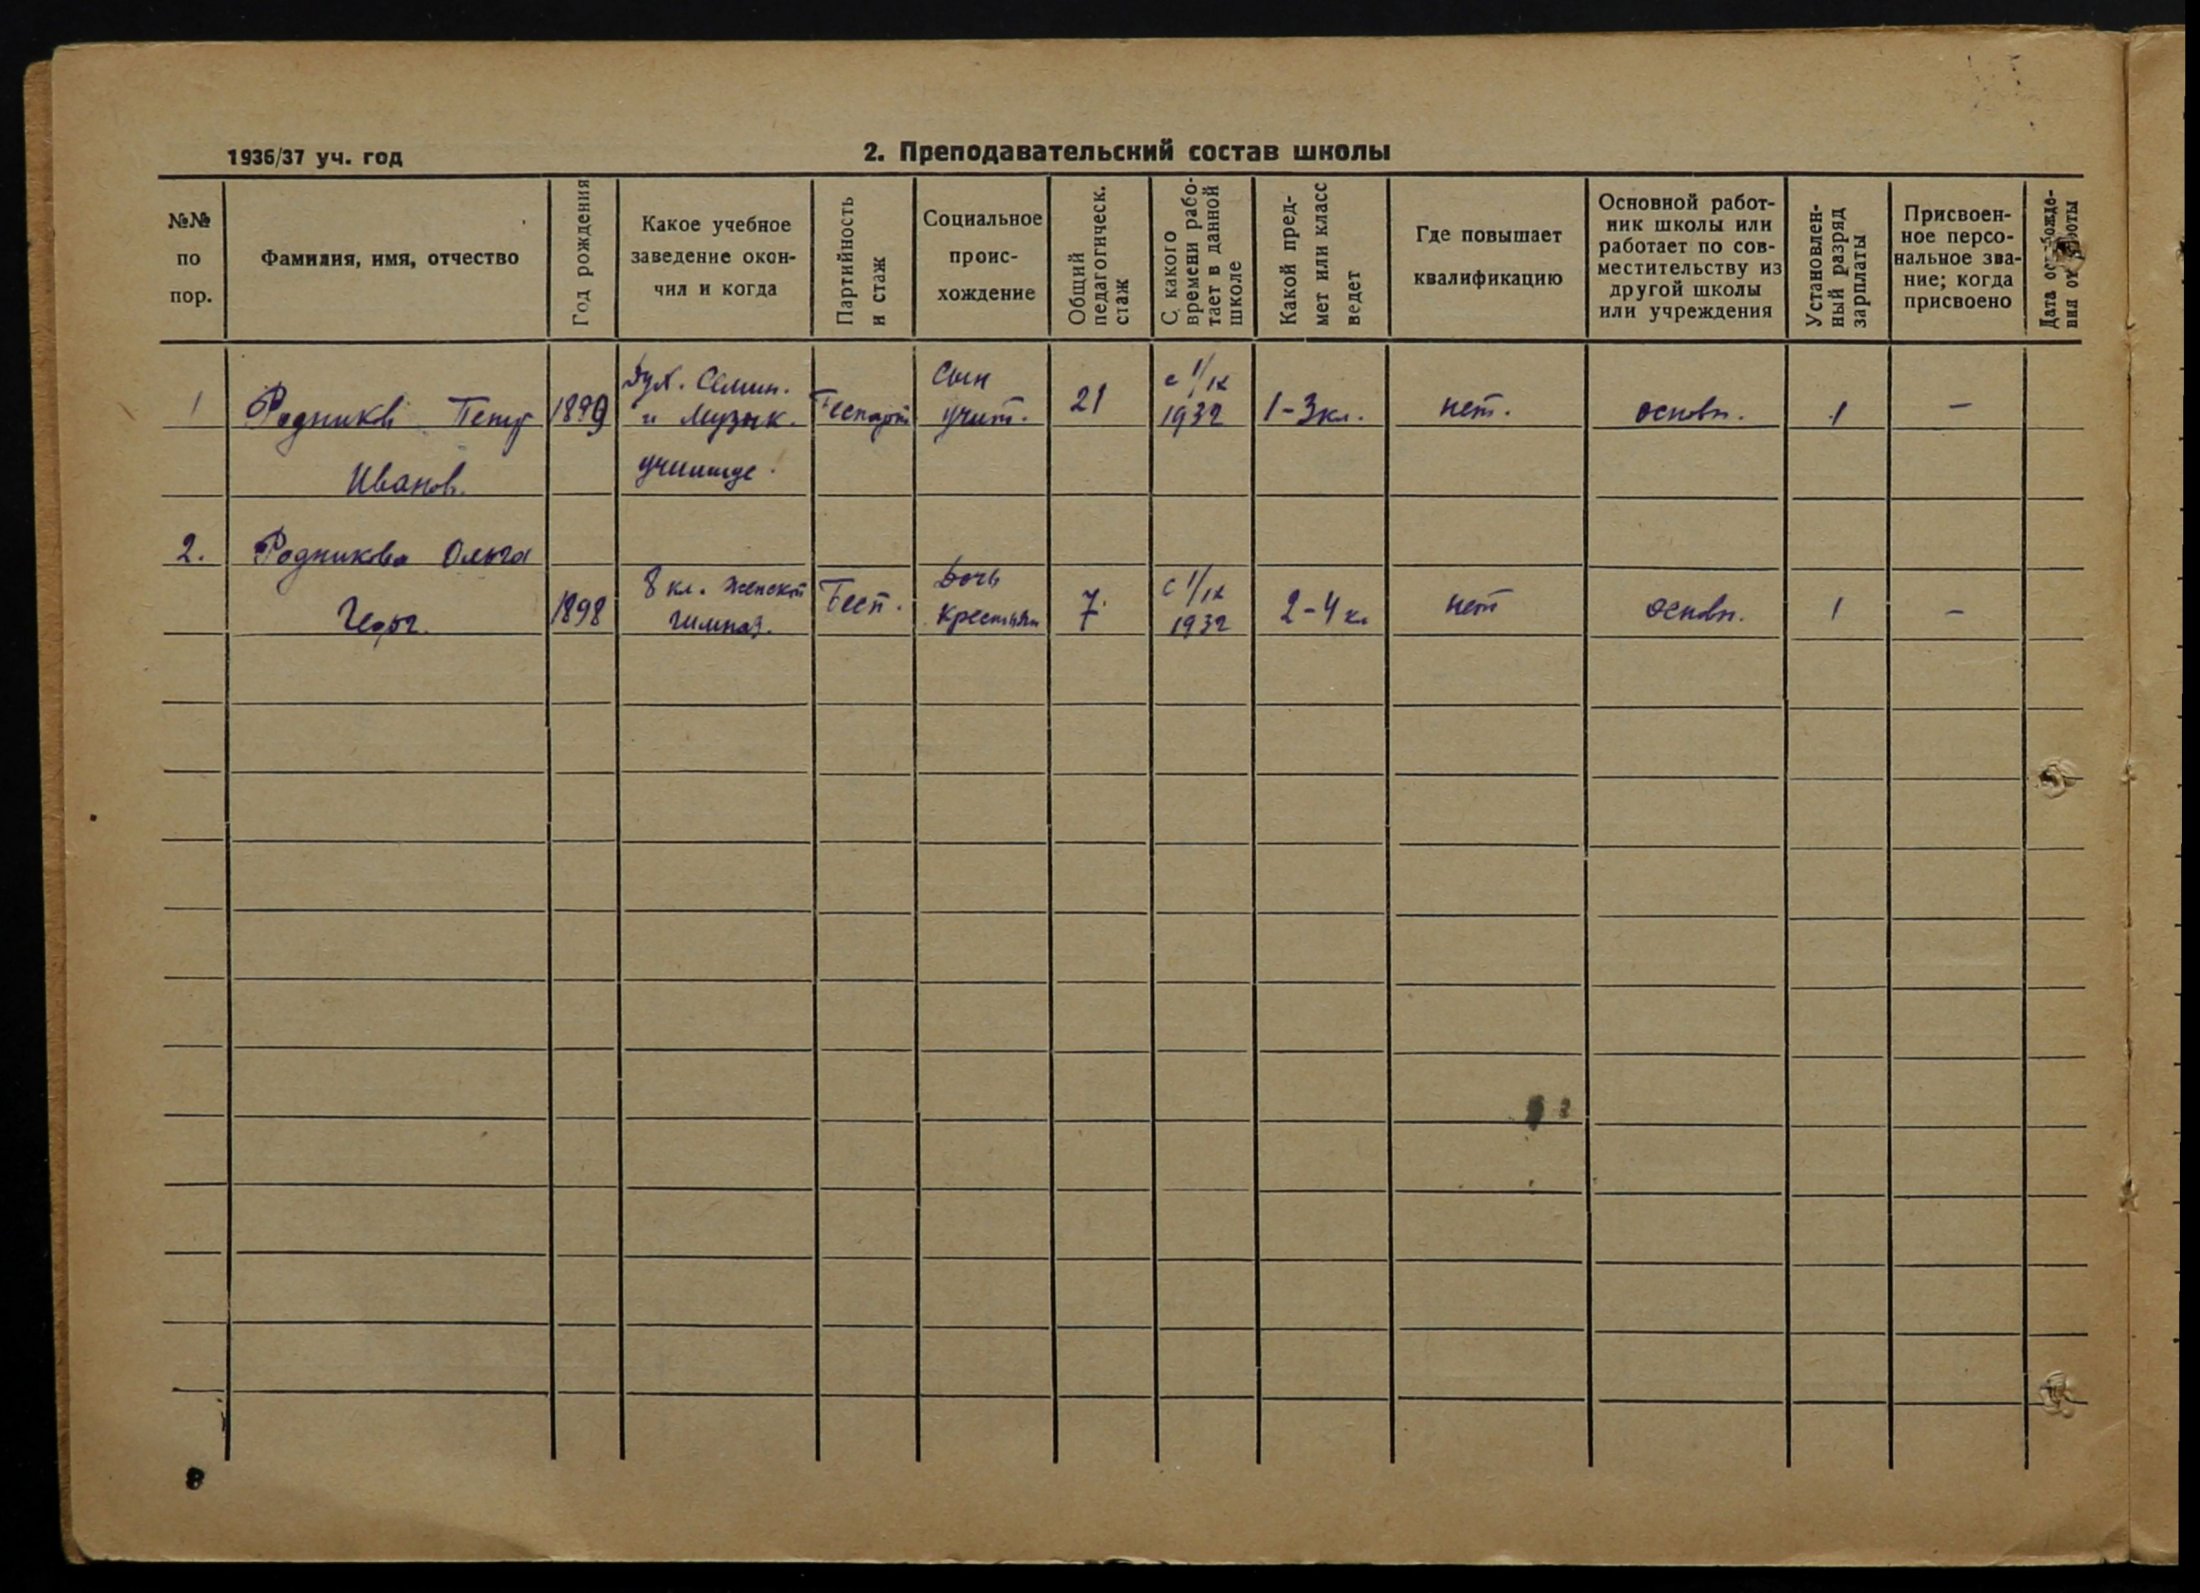 1936/37 уч. год
2. Преподавательский состав школы
№№ по пор.
Фамилия, имя, отчество
Год рождения
Какое учебное заведение окон-
чил и когда
Партийность и стаж
Социальное проис-
хождение
Общий педагогическ. стаж
С какого времени рабо-
тает в данной школе
Какой пред-
мет или класс ведет
Где повышает квалификацию
Основной работ-
ник школы или
работает по сов-
местительству из
другой школы
или учреждения
Установлен-
ный разряд зарплаты
Присвоен-
ное персо-
нальное зва-
ние; когда
присвоено
Дата
1 Родников Петр Иванов. 1899 Дух. Семин. и Музык. училище. Беспарт Сын учит. 21 с 1/IX 1932 1-3 кл. нет. основн. 1 —
2. Родникова Ольга 1898 8 кл. женской гимназ. Бесп. Дочь крестьян 7 с 1/IX 1932 2-4 кл нет основн. 1 —
8